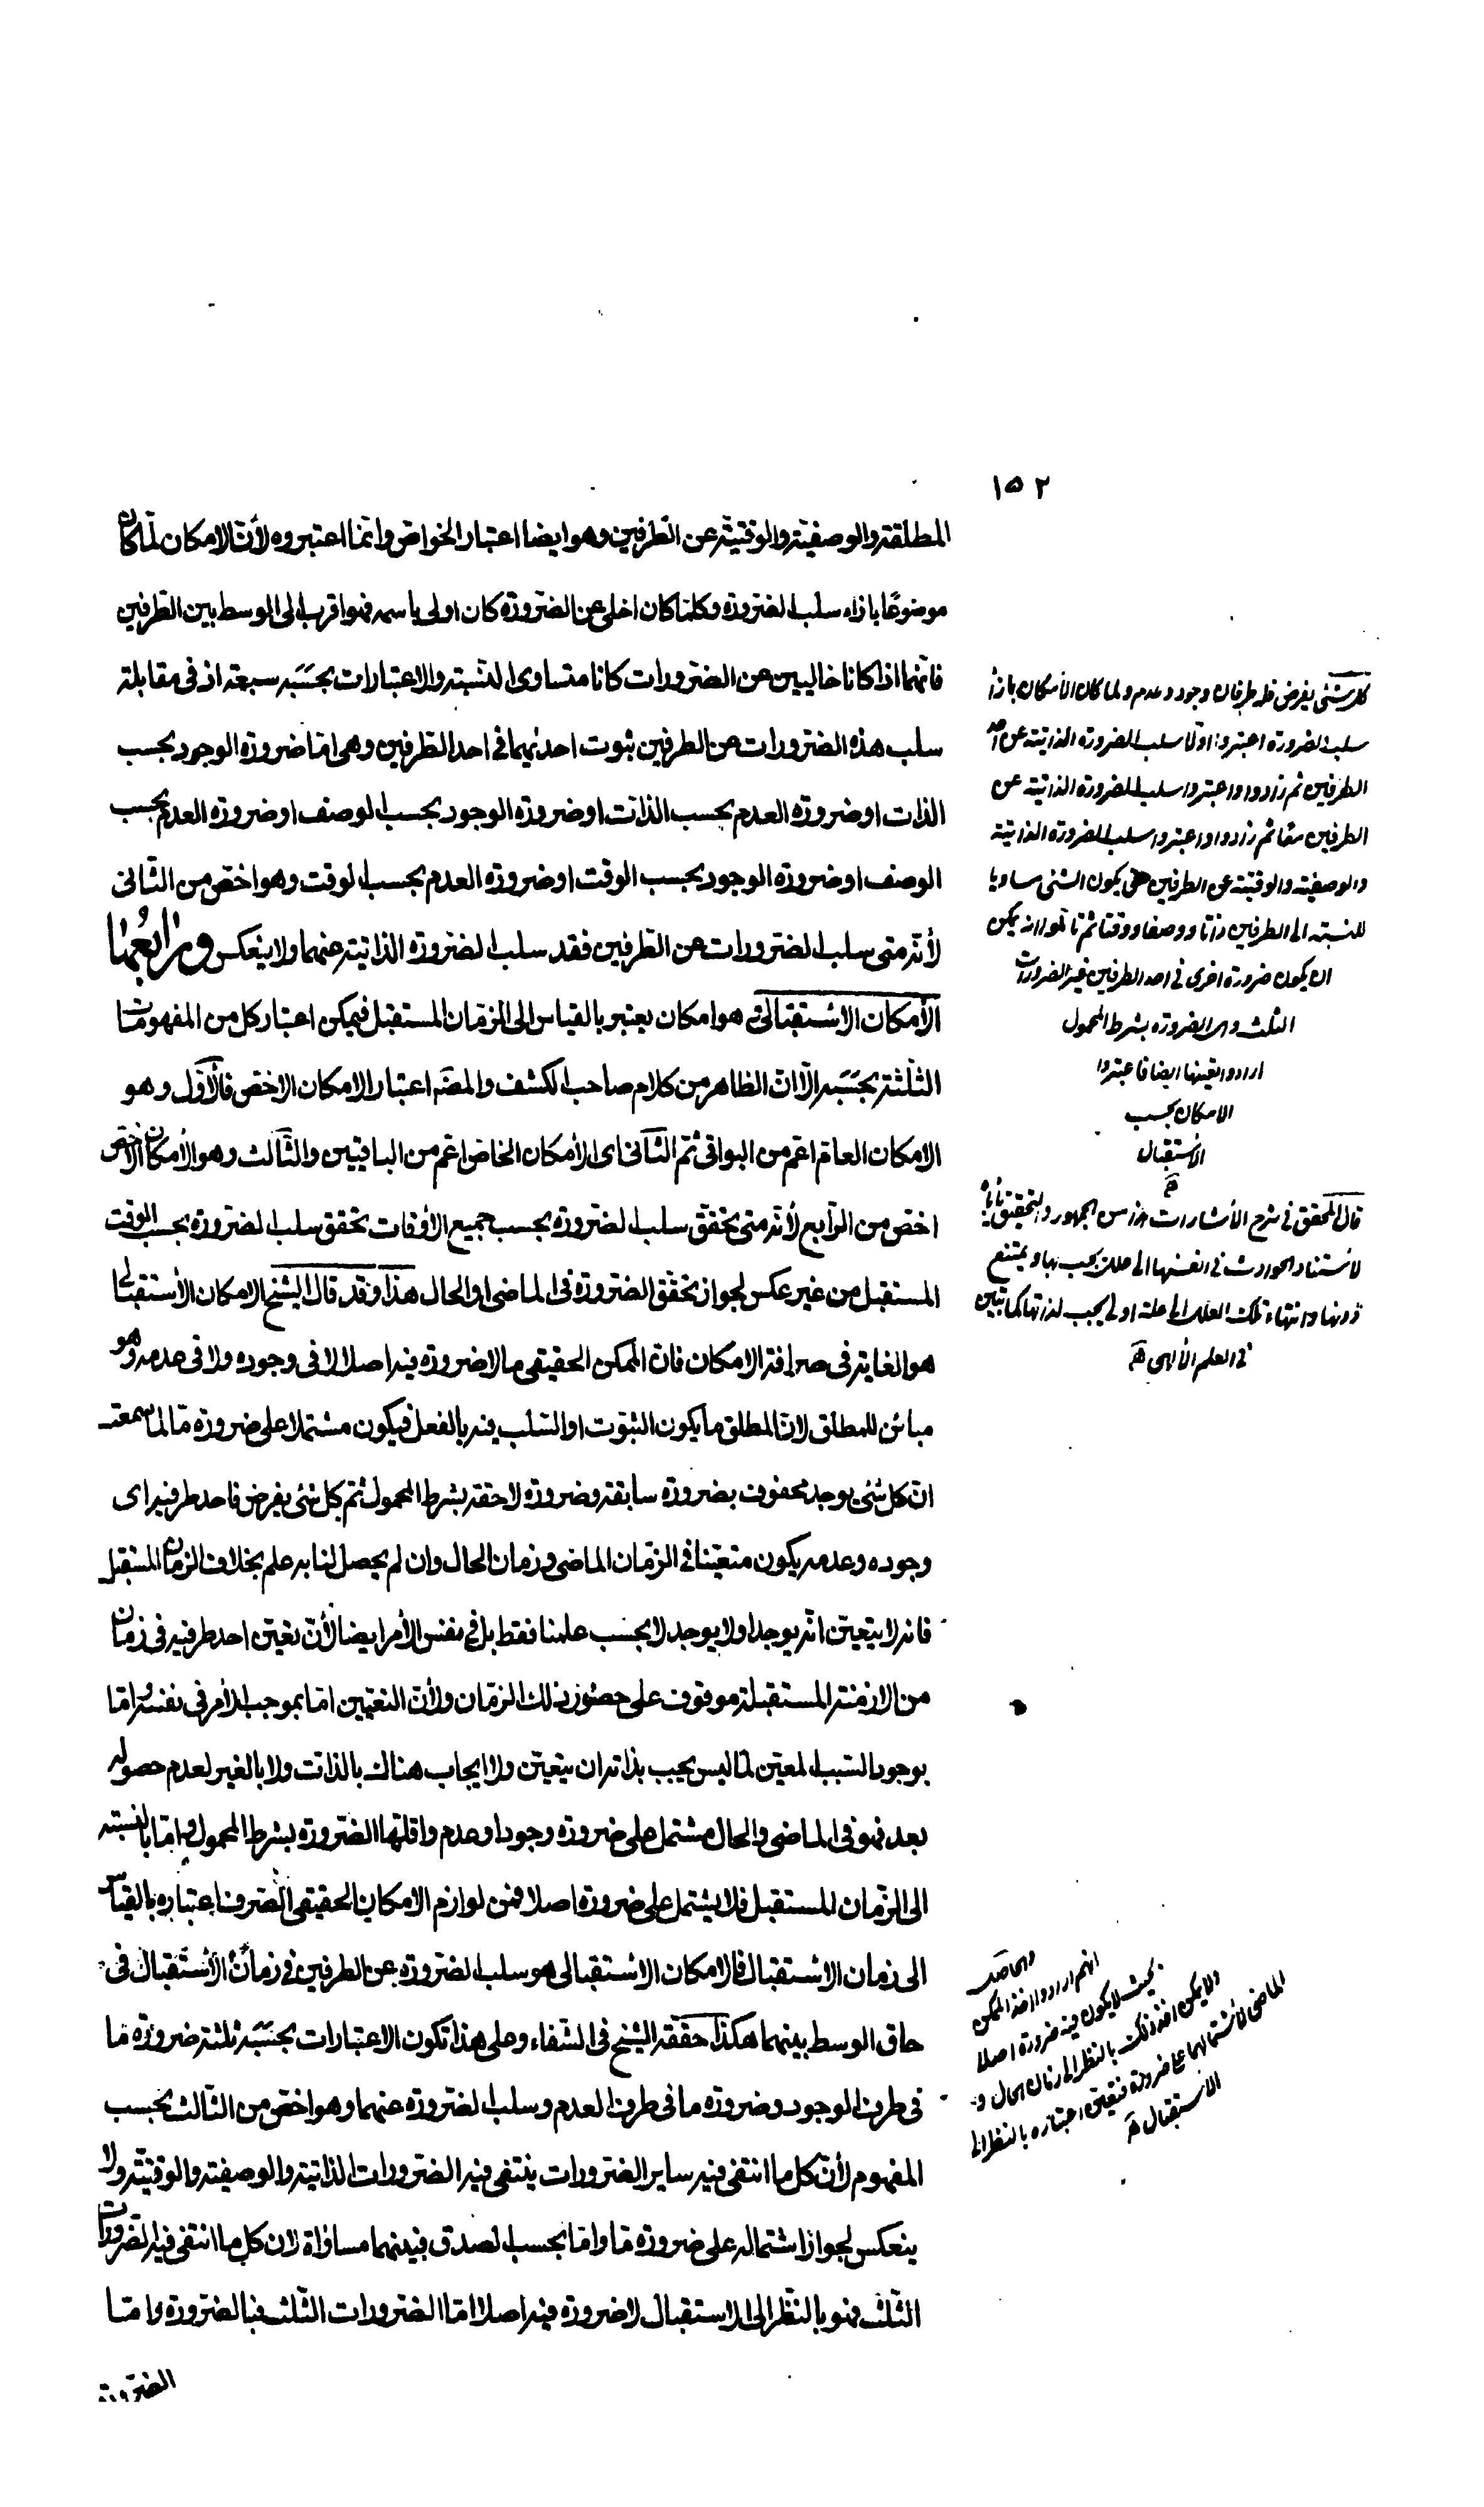 ١٥٢
المطلقة والوصفية والوقتية عن الطرفين وهو ايضا اعتبار الخواص وانما اعتبروه لأنّ الامكان لمّا كان
موضوعًا بازاء سلب الضرورة وكلما كان اخلى عن الضرورة كان اولى باسمه فهو اقرب الى الوسط بين الطرفين
فانّهما اذا كانا خاليين عن الضرورات كانا متساوى النسبة والاعتبارات بحسبه سبعة اذ فى مقابلة
سلب هذه الضرورات عن الطرفين ثبوت احديهما فى احد الطرفين وهى امّا ضرورة الوجود بحسب
الذات او ضرورة العدم بحسب الذات او ضرورة الوجود بحسب الوصف او ضرورة العدم بحسب
الوصف او ضرورة الوجود بحسب الوقت او ضرورة العدم بحسب الوقت وهو اخصّ من الثانى
لأنّه متى سلب الضرورات عن الطرفين فقد سلب الضرورة الذاتية عنهما ولا ينعكس ورابعُها
الأمكان الاستقبالى هو امكان يعتبر بالقياس الى الزمان المستقبل فيمكن اعتبار كل من المفهومات
الثلثة بحسبه الّا انّ الظاهر من كلام صاحب الكشف والمصّ اعتبار الامكان الاخص فالأوّل وهو
الامكان العام اعم من البواقى ثمّ الثانى اى الأمكان الخاص اعم من الباقيين والثالث وهو الأمكان الاخص
اخصّ من الرابع لأنّه متى تحقّق سلب الضرورة بحسب جميع الأوقات تحقق سلب الضرورة بحسب الوقت
المستقبل من غير عكس لجواز تحقّق الضرورة فى الماضى او الحال هذا وقد قال الشيخ الامكان الأستقبالى
هو الغاية فى صرافة الامكان فانّ الممكن الحقيقى ما لا ضرورة فيه اصلا لا فى وجوده ولا فى عدمه وهو
مبائن للمطلق لانّ المطلق ما يكون الثبوت او السّلب فيه بالفعل فيكون مشتملا على ضرورة مّا لما سمعت
انّ كل شئ يوجد محفوف بضرورة سابقة وضرورة لاحقة بشرط المحمول ثم كل شئ يفرض فاحد طرفيه اى
وجوده وعدمه يكون متعيّنا فى الزمان الماضى وزمان الحال وان لم يحصل لنا به علم بخلاف الزمان المستقبل
فانه لا يتعيّن انّه يوجد او لا يوجد لا بحسب علمنا فقط بل فى نفس الأمر ايضا لأنّ تعيّن احد طرفيه فى زمان
من الازمنة المستقبلة موقوف على حضور ذلك الزمان ولأن التعيين امّا بموجب الأمر فى نفسه وامّا
بوجود السّبب المعين لما ليس يجب بذاته ان يتعيّن ولا ايجاب هناك بالذات ولا بالغير لعدم حصوله
بعد فهو فى الماضى والحال مشتمل على ضرورة وجود او عدم واقلها الضرورة بشرط المحمول وامّا بالنسبة
الى الزمان المستقبل فلا يشتمل على ضرورة اصلا فمن لوازم الامكان الحقيقى الصّرف اعتباره بالقياس
الى زمان الاستقبال فالامكان الاستقبالى هو سلب الضرورة عن الطرفين فى زمان الأستقبال فى
حاق الوسط بينهما هكذا حققه الشيخ فى الشفاء وعلى هذا تكون الاعتبارات بحسبه ثلثة ضرورة ما
فى طرف الوجود وضرورة ما فى طرف العدم وسلب الضرورة عنهما وهو اخصّ من الثالث بحسب
المفهوم لأنّ كل ما انتفى فيه ساير الضرورات ينتفى فيه الضرورات الذاتية والوصفية والوقتية ولا
ينعكس لجواز اشتماله على ضرورة مّا وامّا بحسب الصدق فبينهما مساواة لان كل ما انتفى فيه الضرورات
الثلث فهو بالنظر الى الاستقبال لا ضرورة فيه اصلا امّا الضرورات الثلث فبالضرورة وامّا
الضرورة
كل شئ يفرض فله طرفان وجود وعدم ولما كان الأمكان بازاء
سلب الضرورة اعتبروا اوّلا سلب الضرورة الذاتية عن احد
الطرفين ثم زادوا واعتبروا سلب الضرورة الذاتية عن
الطرفين معًا ثم زادوا واعتبروا سلب الضرورة الذاتية
والوصفية والوقتية عن الطرفين حتى يكون الشئ مساويا
للنسبة الى الطرفين ذاتًا ووصفا ووقتا ثم تأملوا انه يمكن
ان يكون ضرورة اخرى فى احد الطرفين غير الضرورات
الثلث وهى الضرورة بشرط المحمول
ارادوا نفيها ايضا فاعتبروا
الامكان بحسب
الاستقبال
قال المحقق فى شرح الأشارات هذا من الجمهور والتحقيق يأباه
لاستناد الحوادث فى انفسها الى علل يجب بها ويمتنع
دونها وانتهاء تلك العلل الى علة اولى يجب لذاتها كما تبين
فى العلم الألهى
والحاصل
انهم ارادوا اخذ الممكن
بحيث لا يكون فيه ضرورة اصلا
ولا يمكن اخذ ذلك بالنظر الى زمان الحال و
الماضى لأشتمالهما على ضرورة فتعين اعتباره بالنظر الى
الاستقبال